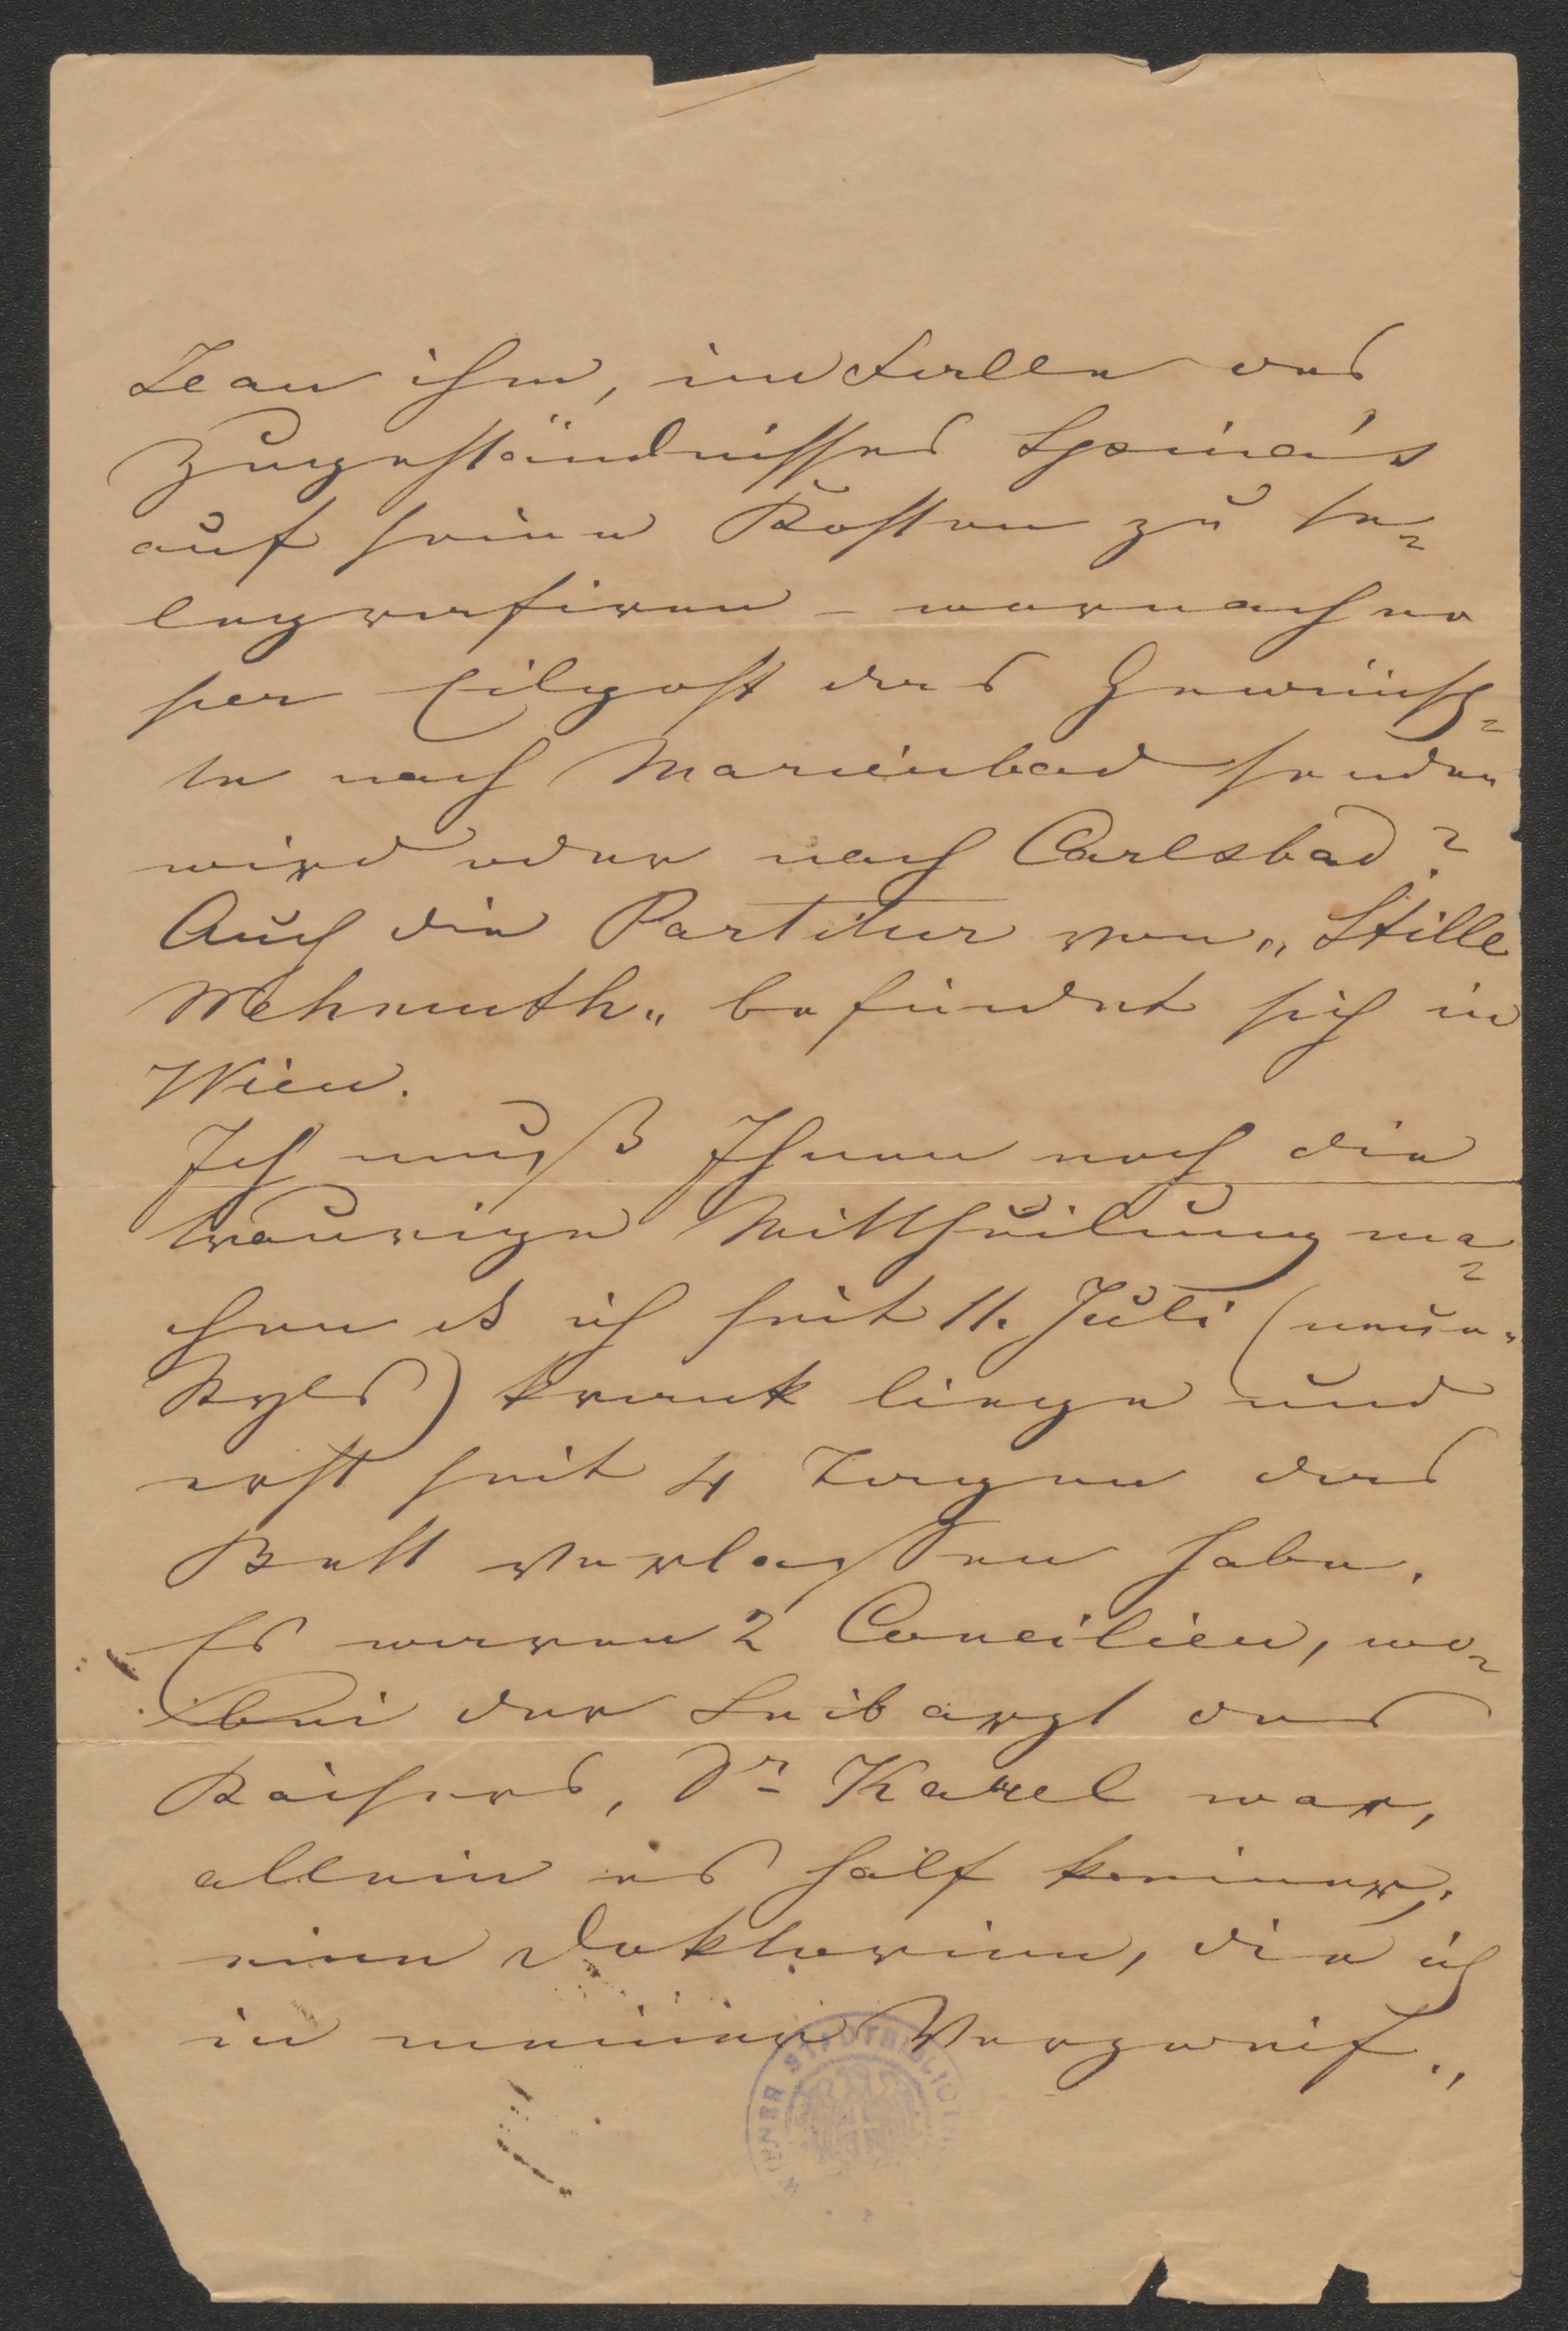 Jean ihm, im Falle des
Zugeständnisses Spina's
auf seine Kosten zu te-
legrafiren – wornach er
per Eilpost das Gewünsch-
te nach Marienbad senden
wird oder nach Carlsbad?
Auch die Partitur von „Stille
Wehmuth„ befindet sich in
Wien.
Ich muß Ihnen noch die
traurige Mittheilung ma-
chen ds ich seit 11. Juli (neuen
Styls) krank liege und
erst seit 4 Tagen das
Bett verlassen habe.
Es waren 2 Concilien, wo-
bei der Leibarzt des
Kaisers, Dr Karel war,
allein es half keiner,
eine Doktorinn, die ich
in meiner Verzweif-
WIENER STADTBIBLIOTHEK